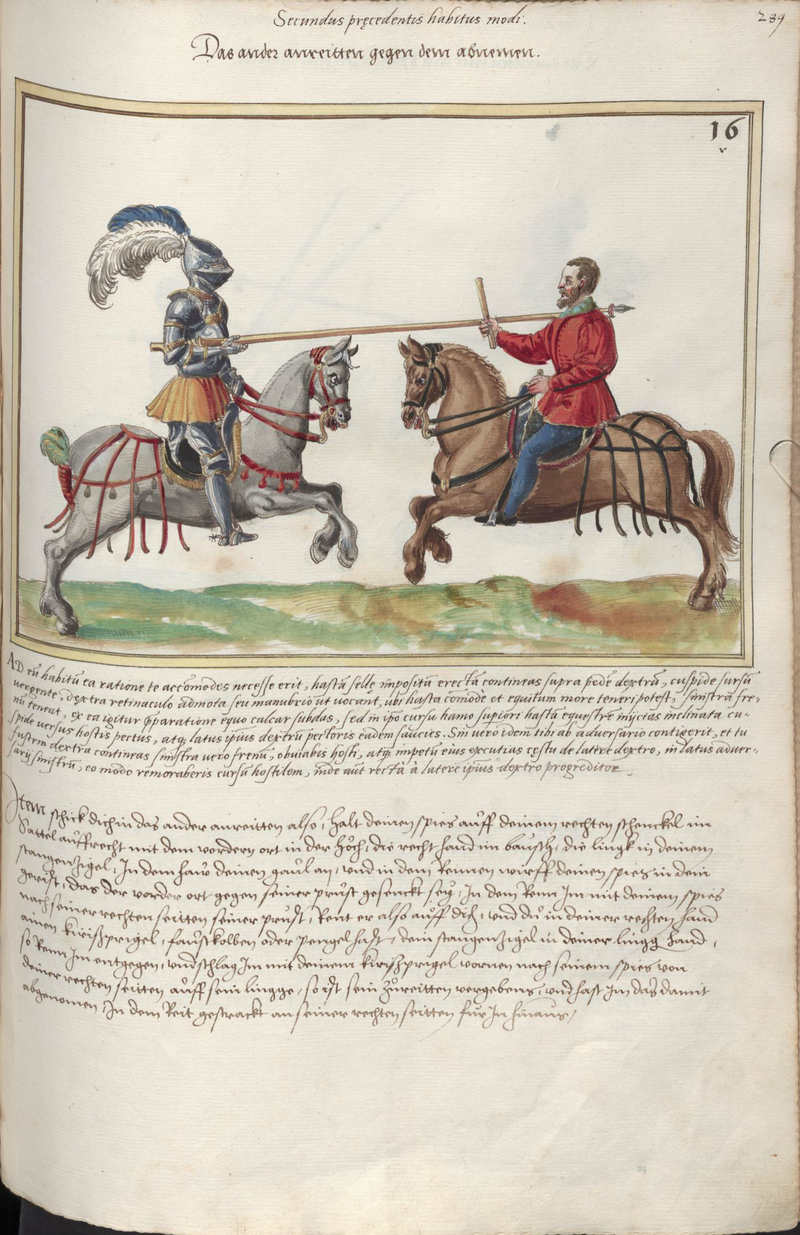 Secundus pręcedentis habitus modi.
239
Das ander anreitten gegen dem abnemen.
16
AD eũ habitũ ea ratione te accõmodes necesse erit, hastã sellę impositũ erectã contineas supra pedẽ dextrũ, cuspide sursũ
vergente, dextra retinaculo admota seu manubrio ut vocant, ubi hasta cõmode et equitum more teneri potest, sinistrã fre-
nũ teneat, ex ea igitur pparatione equo calcar subdas, sed in ipõ cursu hamo supiori hastã equestrẽ inijcias inclinata cu-
spide versus hostis pectus, atq latus ipius dextrũ pectoris eadem saucies. Sin vero idem tibi ab adversario contigerit, et tu
fustem dextra contineas sinistra vero frenũ, obviabis hosti, atq impetũ eius excutias cęstu de latere dextro, in latus adver-
sarij sinistrũ, eo modo remoraberis cursũ hostilem, inde aut rectà à latere ipius dextro progreditor.
Item schick dich in das ander anreitten also, halt deinen spies auff deinem rechten schenckel im
Sattel auffrecht mit dem vordern ort in der höch, die recht hand im bausch, die lingk in deinem
stangen zigel, In dem haw deinen gaul an, und in dem Rennen wirff deinen spies in dein
gerist, das der vorder ort gegen seiner prust gesenckt sey, In dem Renn Im mit deinem spies
nach seiner rechten seitten seiner prust, Rent er also auff dich, und du in deiner rechten hand
ainen kirißprigel, faustkolben oder pengel hast, dem stangen zigel in deiner lingg hand,
so Renn Im entgegen, und schlag Im mit deinem kirißprigel vornen nach seinem spies von
deiner rechten seitten auff sein lingge, so ist sein zureitten vergebens, und hast Im das damit
abgenomen, In dem Reit gestrackt an seiner rechten seitten für In hinaus,